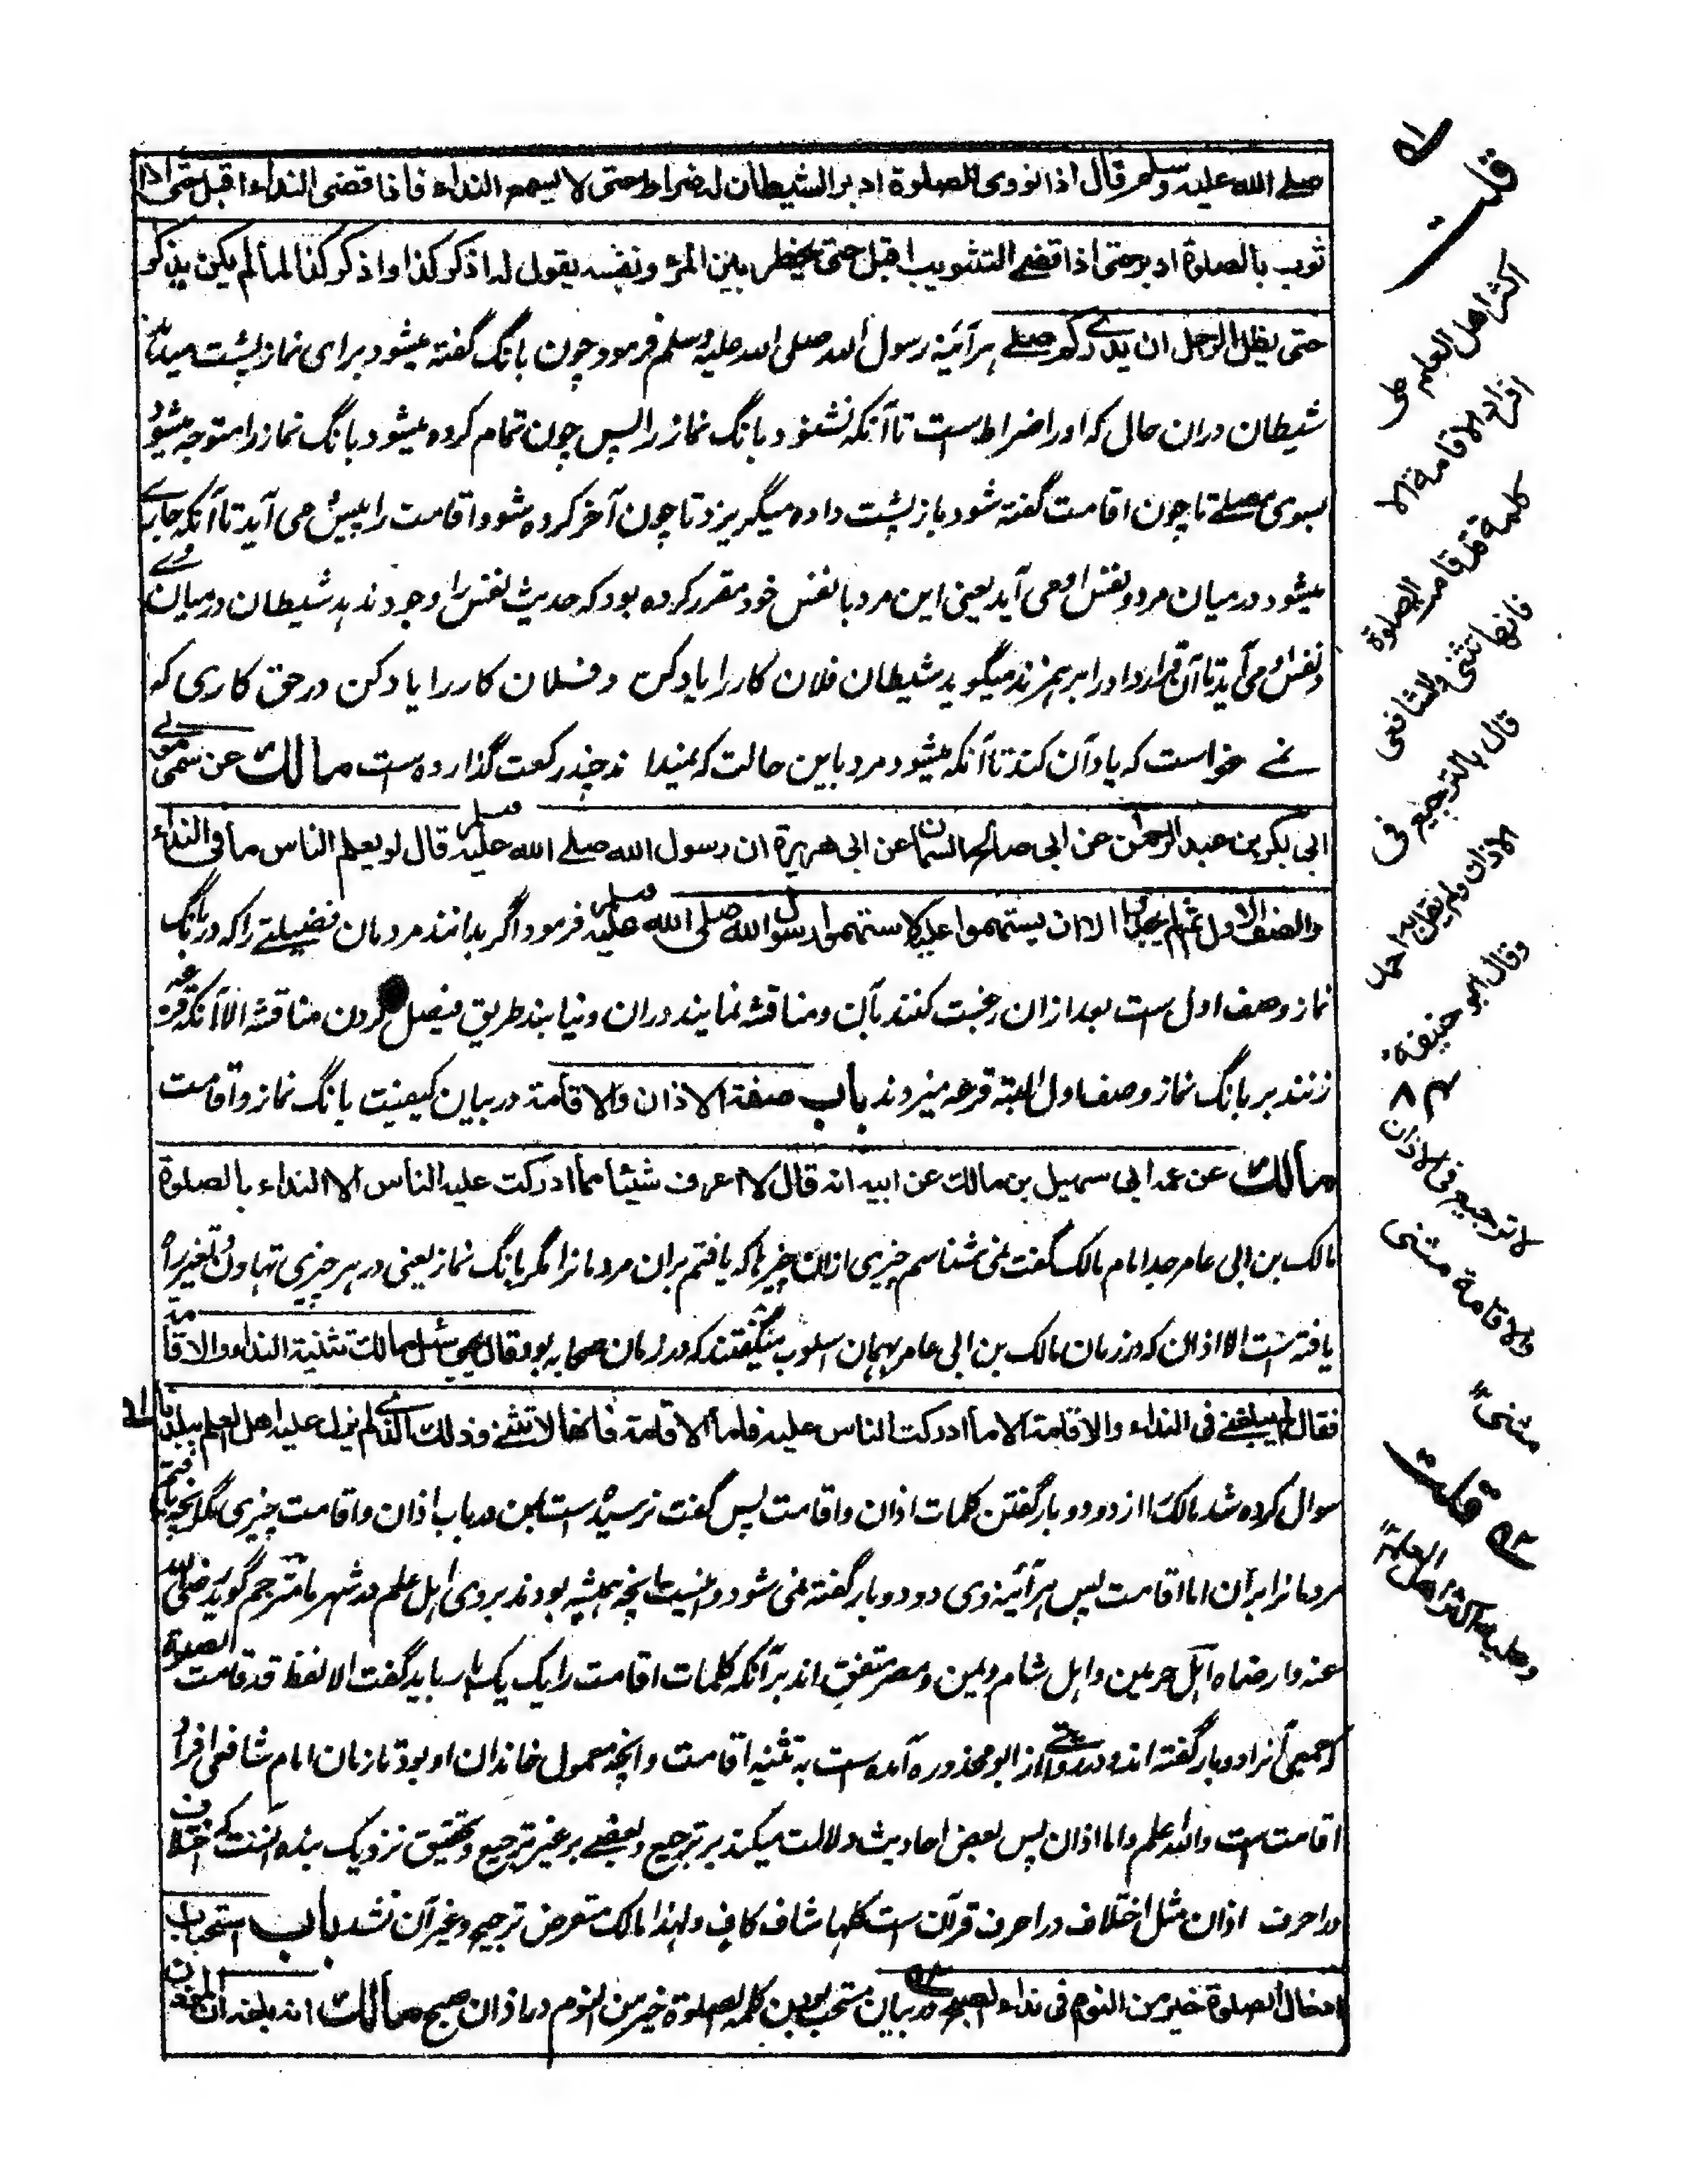 صلے الله علیه وسلم قال اذا نودی للصلوة ادبر الشیطان له ضراط حتی لا یسمع النداء فاذا قضی النداء اقبل حتی اذا
ثوب بالصلوة ادبر حتی اذا قضے التثویب اقبل حتی یخطر بین المرء ونفسه یقول له اذکر کذا واذکر کذا لما لم یکن یذکر
حتی یظل الرجل ان یدری کم صلے ہر آئینہ رسول اللہ صلی اللہ علیہ وسلم فرمود چون بانگ گفتہ میشود برای نماز پشت میدہد
شیطان دران حال کہ اورا ضراط است تا آنکہ نشنود بانگ نماز را پس چون تمام کردہ میشود بانگ نماز را متوجہ میشود
بسوی مصلے تا چون اقامت گفتہ شود باز پشت دادہ میگریزد تا چون آخر کردہ شود اقامت را پیش می آید تا آنکہ حایل
میشود درمیان مرد و نفس او می آید یعنی این مرد با نفس خود مقرر کردہ بود کہ حدیث نفس را وجود ندہد شیطان درمیان وے
و نفس می آید تا آن قرارداد را برہم زند میگوید شیطان فلان کار را یاد کن و فلان کار را یاد کن در حق کاری کہ
نمے خواست کہ یاد آن کند تا آنکہ میشود مرد باین حالت کہ نمیداند چند رکعت گذاردہ است مالك عن سمی مولے
ابی بکر بن عبد الرحمن عن ابی صالح السمان عن ابی هریرة ان رسول الله صلے الله علیه وسلم قال لو یعلم الناس ما فی النداء
والصف الاول ثم لم یجدوا الا ان یستهموا علیه لاستهموا رسول الله صلی الله علیه وسلم فرمود اگر بدانند مردمان فضیلتے را کہ در بانگ
نماز و صف اول ست بعد ازان رغبت کنند بآن و مناقشہ نمایند دران و نیابند طریق فیصل کردن مناقشہ الا آنکہ قرعہ
زنند بر بانگ نماز و صف اول البتہ قرعہ میزدند باب صفة الاذان والاقامة در بیان کیفیت بانگ نماز و اقامت
مالك عن عمه ابی سهیل بن مالك عن ابیه انه قال لا اعرف شیئا مما ادرکت علیه الناس الا النداء بالصلوة
مالک بن ابی عامر جد امام مالک گفت نمی شناسم چیزی ازان چیزہا کہ یافتم بران مردمانرا مگر بانگ نماز یعنی در ہر چیزی تہاون و تغیر راہ
یافتہ است الا اذان کہ در زمان مالک بن ابی عامر بہمان اسلوب میگفتند کہ در زمان صحابہ بود قال یحیی سئل مالك تثنیة النداء والاقامة
فقال لم یبلغنی فی النداء والاقامة الا ما ادرکت الناس علیه فاما الاقامة فانها لا تثنے وذلك الذی لم یزل علیه اهل العلم ببلدنا
سوال کردہ شد مالک از دو دو بار گفتن کلمات اذان و اقامت پس گفت نرسیدہ است بمن در باب اذان و اقامت چیزی مگر آنچہ یافتم
مردمانرا بر آن اما اقامت پس ہر آئینہ وی دو دو بار گفتہ نمی شود و اینست آنچہ ہمیشہ بودند بر وی اہل علم در شہر ما مترجم گوید رضی اللہ
عنہ وارضاہ اہل حرمین و اہل شام و یمن و مصر متفق اند بر آنکہ کلمات اقامت را یک یک بار باید گفت الا لفظ قد قامت الصلوة
کہ جمعی آنرا دو بار گفتہ اند و در روایتے از ابو محذورہ آمدہ است بہ تثنیہ اقامت و آنچہ معمول خاندان او بود تا زمان امام شافعی افراد
اقامت ست واللہ اعلم و اما اذان پس بعض احادیث دلالت میکند بر ترجیع و بعضے بر غیر ترجیع و تحقیق نزدیک بندہ آنست کہ اختلاف
در احرف اذان مثل اختلاف در احرف قرآن ست کلہا شاف کاف ولہذا مالک متعرض ترجیع و غیر آن نشد باب استحباب
ادخال الصلوة خیر من النوم فی نداء الصبح در بیان مستحب بودن کلمہ الصلوة خیر من النوم در اذان صبح مالك انه بلغه ان المؤذن
۵۱ قلت
اکثر اهل العلم علی
افراد الاقامة الا
کلمة قد قامت الصلوة
فانها تثنی والشافعی
قال بالترجیع فی
الاذان ولم یقل به احمد
وقال ابو حنیفة
لا ترجیع فی الاذان
والاقامة مثنی
مثنی
۵۲ قلت
وعلیه اکثر اهل العلم